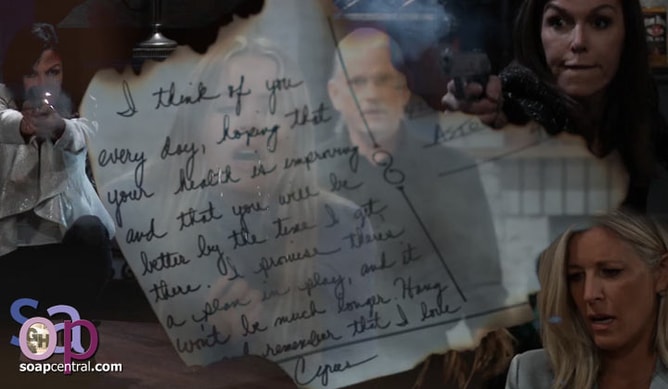 I think of you
every day, hoping that
your health is improving
and that you will be
better by the time I get
there. I promise theres
a plan in play, and it
won't be much longer. Hang
remember that I love
Cyrus
sa
GH
op
soapcentral.com